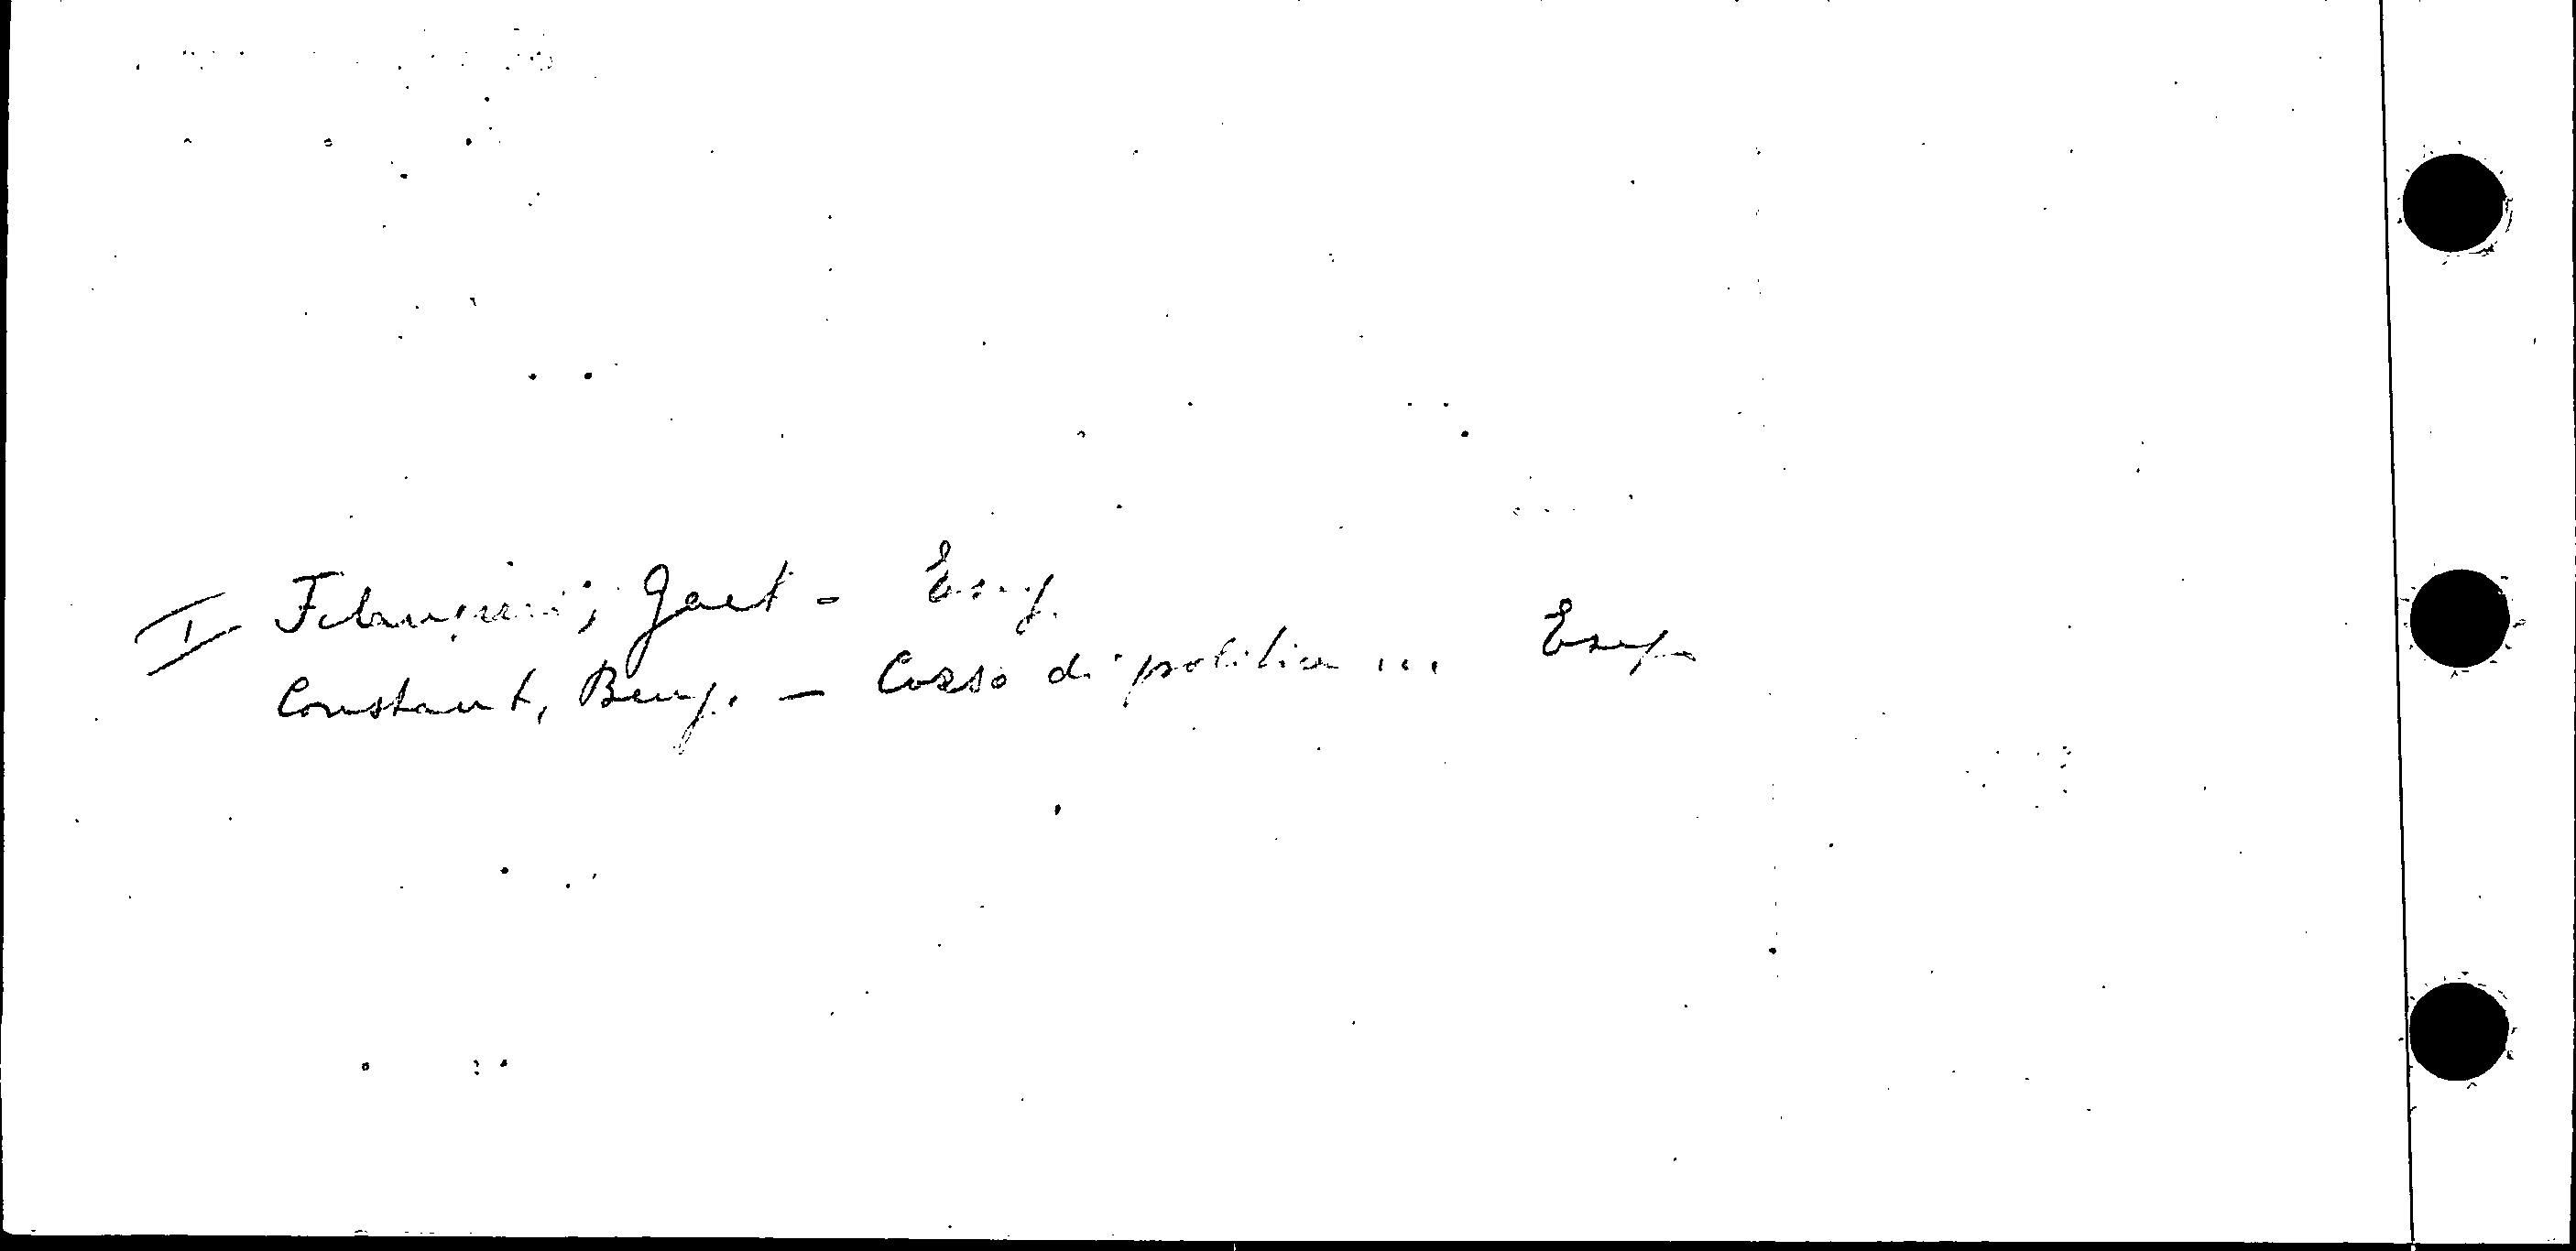 I Filangieri, Gaet - Esp.
Constant, Benj. - Corso di politica ... Esp